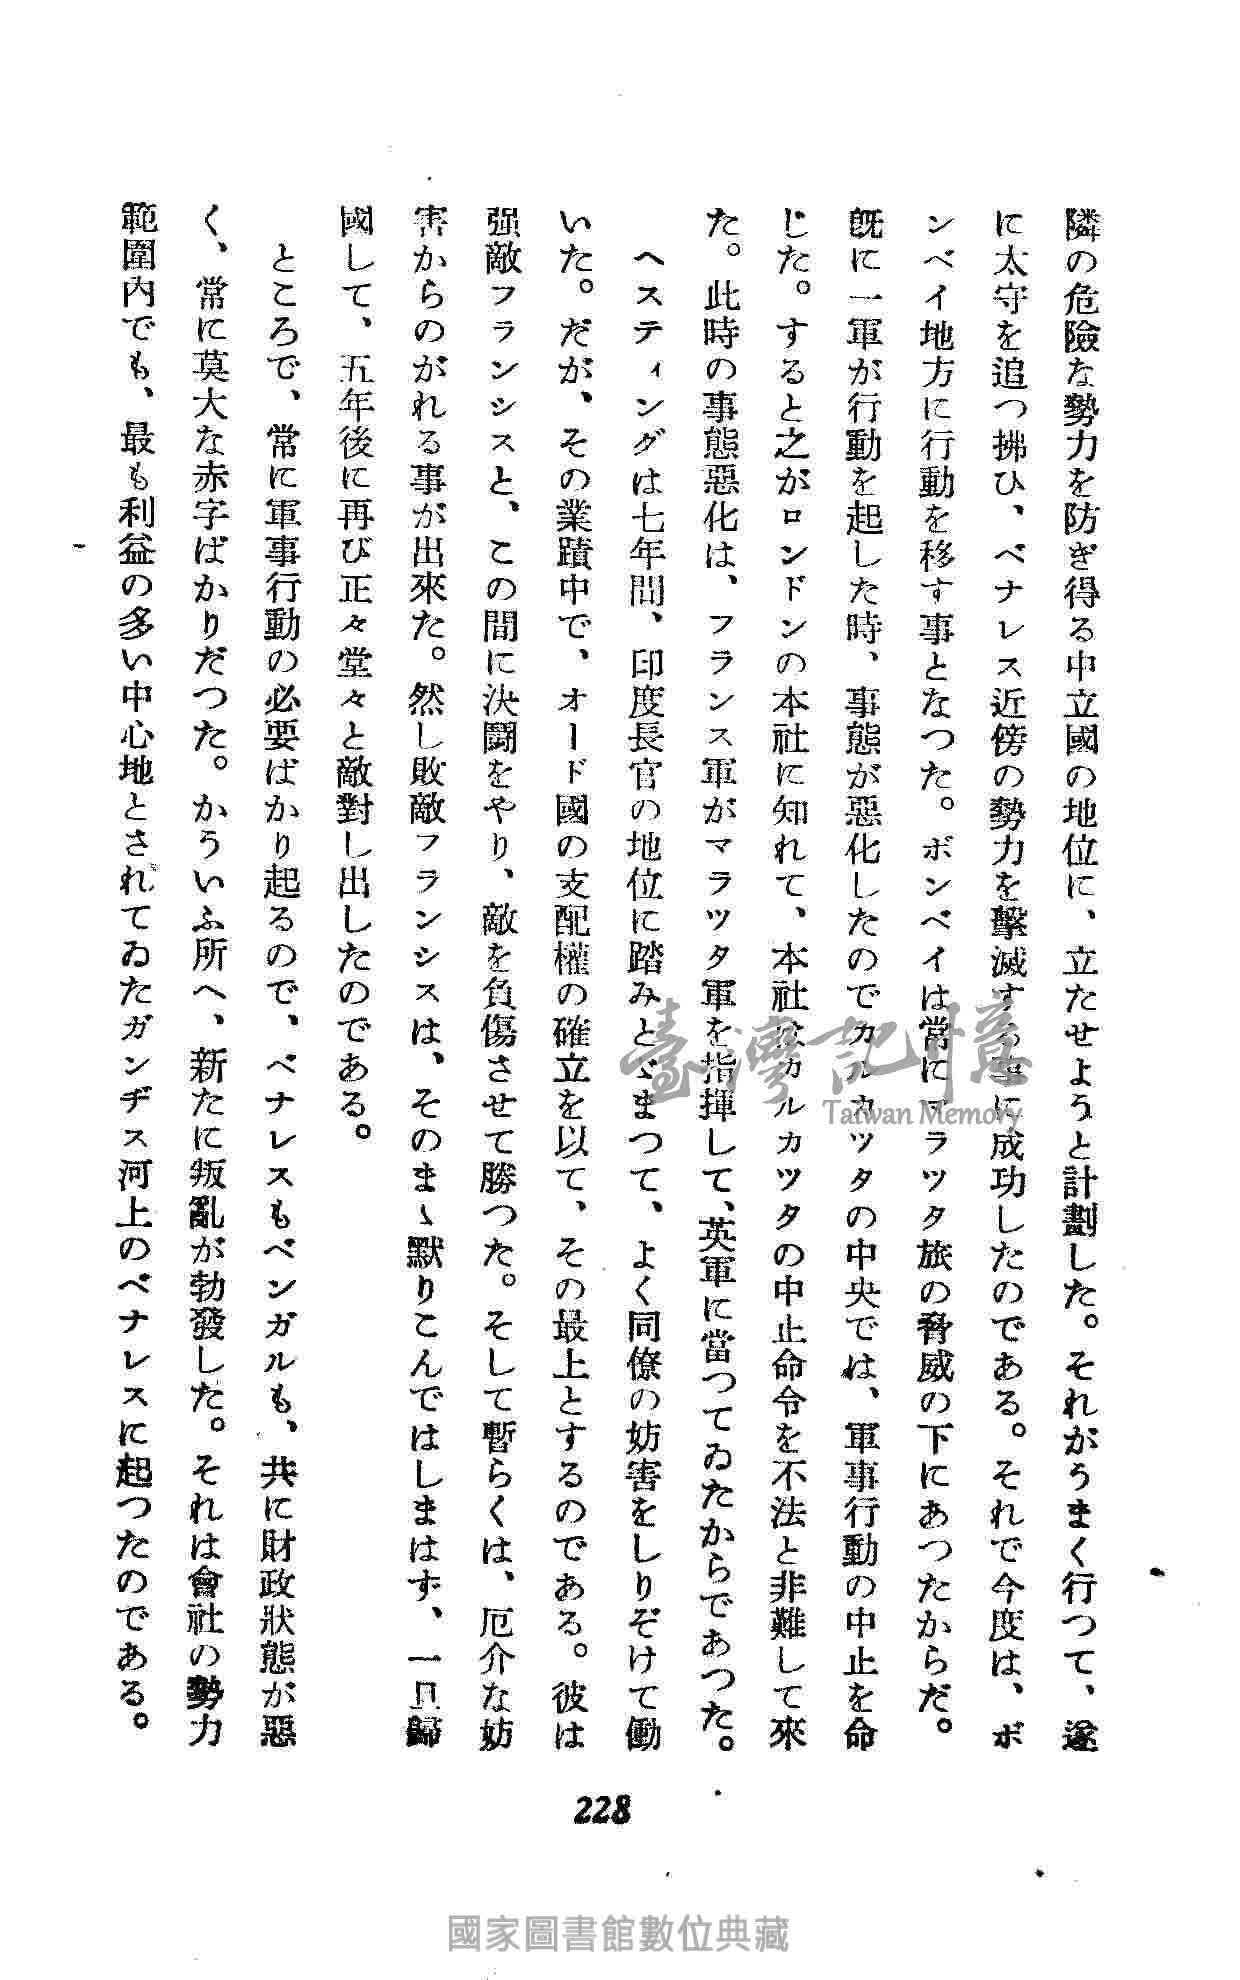 隣の危險な勢力を防ぎ得る中立國の地位に、立たせようと計劃した。それがうまく行つて、遂
に太守を追つ拂ひ、ベナレス近傍の勢力を擊滅する事に成功したのである。それで今度は、ボ
ンベイ地方に行動を移す事となつた。ボンベイは常にマラツタ旅の脅威の下にあつたからだ。
既に一軍が行動を起した時、事態が惡化したのでカルカツタの中央では、軍事行動の中止を命
じた。すると之がロンドンの本社に知れて、本社はカルカツタの中止命令を不法と非難して來
た。此時の事態惡化は、フランス軍がマラツタ軍を指揮して、英軍に當つてゐたからであつた。
ヘスティングは七年間、印度長官の地位に踏みとゞまつて、よく同僚の妨害をしりぞけて働
いた。だが、その業蹟中で、オード國の支配權の確立を以て、その最上とするのである。彼は
强敵フランシスと、この間に決鬪をやり、敵を負傷させて勝つた。そして暫らくは、厄介な妨
害からのがれる事が出來た。然し敗敵フランシスは、そのまゝ默りこんではしまはず、一旦歸
國して、五年後に再び正々堂々と敵對し出したのである。
ところで、常に軍事行動の必要ばかり起るので、ベナレスもベンガルも、共に財政狀態が惡
く、常に莫大な赤字ばかりだつた。かういふ所へ、新たに叛亂が勃發した。それは會社の勢力
範圍內でも、最も利益の多い中心地とされてゐたガンヂス河上のベナレスに起つたのである。
228
臺灣記憶
Taiwan Memory
國家圖書館數位典藏